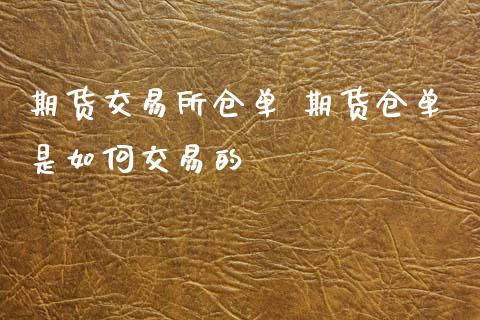 期货交易所仓单 期货仓单
是如何交易的